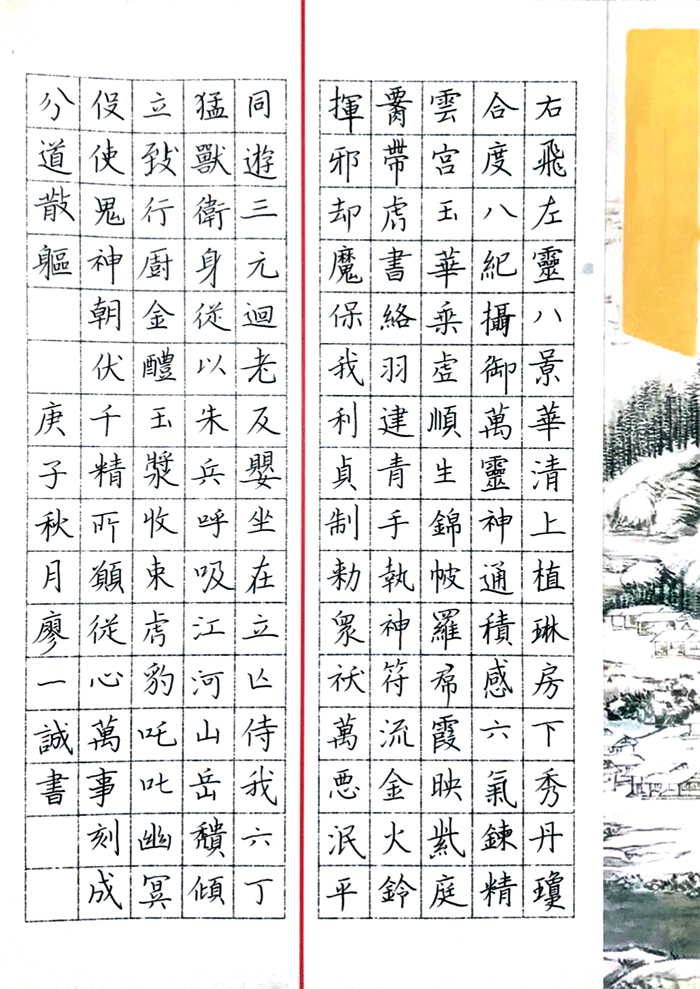 右飛左靈八景華清上植琳房下秀丹瓊
合度八紀攝御萬靈神通積感六氣鍊精
雲宮玉華乘虛順生錦帔羅帬霞映紫庭
腰帶虎書絡羽建青手執神符流金火鈴
揮邪却魔保我利貞制勑衆祅萬惡泯平
同遊三元迴老反嬰坐在立亾侍我六丁
猛獸衛身從以朱兵呼吸江河山岳頹傾
立致行廚金醴玉漿收束虎豹吒叱幽冥
役使鬼神朝伏千精所願從心萬事刻成
分道散軀 庚子秋月廖一誠書